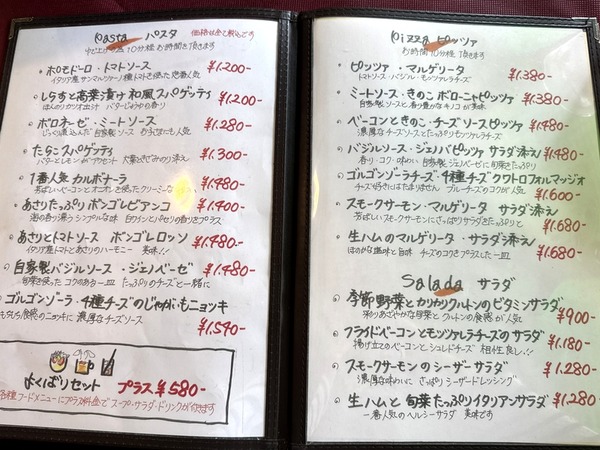 Pasta パスタ 価格は全て税込です
お時間を頂きます
ポモドーロ・トマトソース ¥1.200-
しらすと高菜漬け 和風スパゲッティ ¥1.200-
ほんのりカツオ出汁 バターしょうゆの香り
ボロネーゼ・ミートソース ¥1.280-
たらこスパゲッティ ¥1.300-
1番人気 カルボナーラ ¥1.480-
香ばしいベーコンとオニオンを使ったクリーミーな
あさりたっぷり ボンゴレビアンコ ¥1.400-
海の香り漂う シンプルな味 白ワインとパセリの香りをプラス
あさりとトマトソース ボンゴレロッソ ¥1.480-
イタリア産トマトとあさりのハーモニー 美味!!
自家製バジルソース・ジェノベーゼ ¥1.480-
旬菜を使った コクのある一皿 たっぷりのチーズと一緒に
ゴルゴンゾーラ・4種チーズのじゃがいもニョッキ ¥1.540-
もちもち食感のニョッキに 濃厚なチーズソース
よくばりセット プラス ¥580-
各種フードメニューにプラス料金で スープ・サラダ・ドリンクが付きます
Pizza ピッツァ
お時間10分程 頂きます
ピッツァ・マルゲリータ ¥1.380-
トマトソース・バジル・モッツァレラチーズ
ミートソース・きのこ ボローニャピッツァ ¥1.380-
自家製ソースと香り豊かなキノコが美味
ベーコンときのこ・チーズソースピッツァ ¥1.480-
濃厚なチーズソースとたっぷりモッツァレラチーズ
バジルソース・ジェノバピッツァ サラダ添え ¥1.480-
香り・コク・味わい 自家製ジェノベーゼに旬菜をたっぷり
ゴルゴンゾーラチーズ 4種チーズ クワトロフォルマッジオ ¥1.600-
チーズ好きにはたまりません ブルーチーズのコクが人気
スモークサーモン・マルゲリータ サラダ添え ¥1.680-
芳ばしいスモークサーモンにさっぱりサラダをたっぷりと
生ハムのマルゲリータ・サラダ添え ¥1.680-
ほのかな塩味と旨味 チーズのコクをプラスした一皿
Salada サラダ
季節野菜とカリカリクルトンのビタミンサラダ ¥900-
彩りあざやかな旬菜と クルトンの食感が人気
フライドベーコンとモッツァレラチーズのサラダ ¥1.180-
揚げたてのベーコンとシュレドチーズ 相性良し!!
スモークサーモンのシーザーサラダ ¥1.280-
濃厚な味わいに さっぱり シーザードレッシング
生ハムと旬菜たっぷりイタリアンサラダ ¥1.280-
一番人気のヘルシーサラダ 美味です